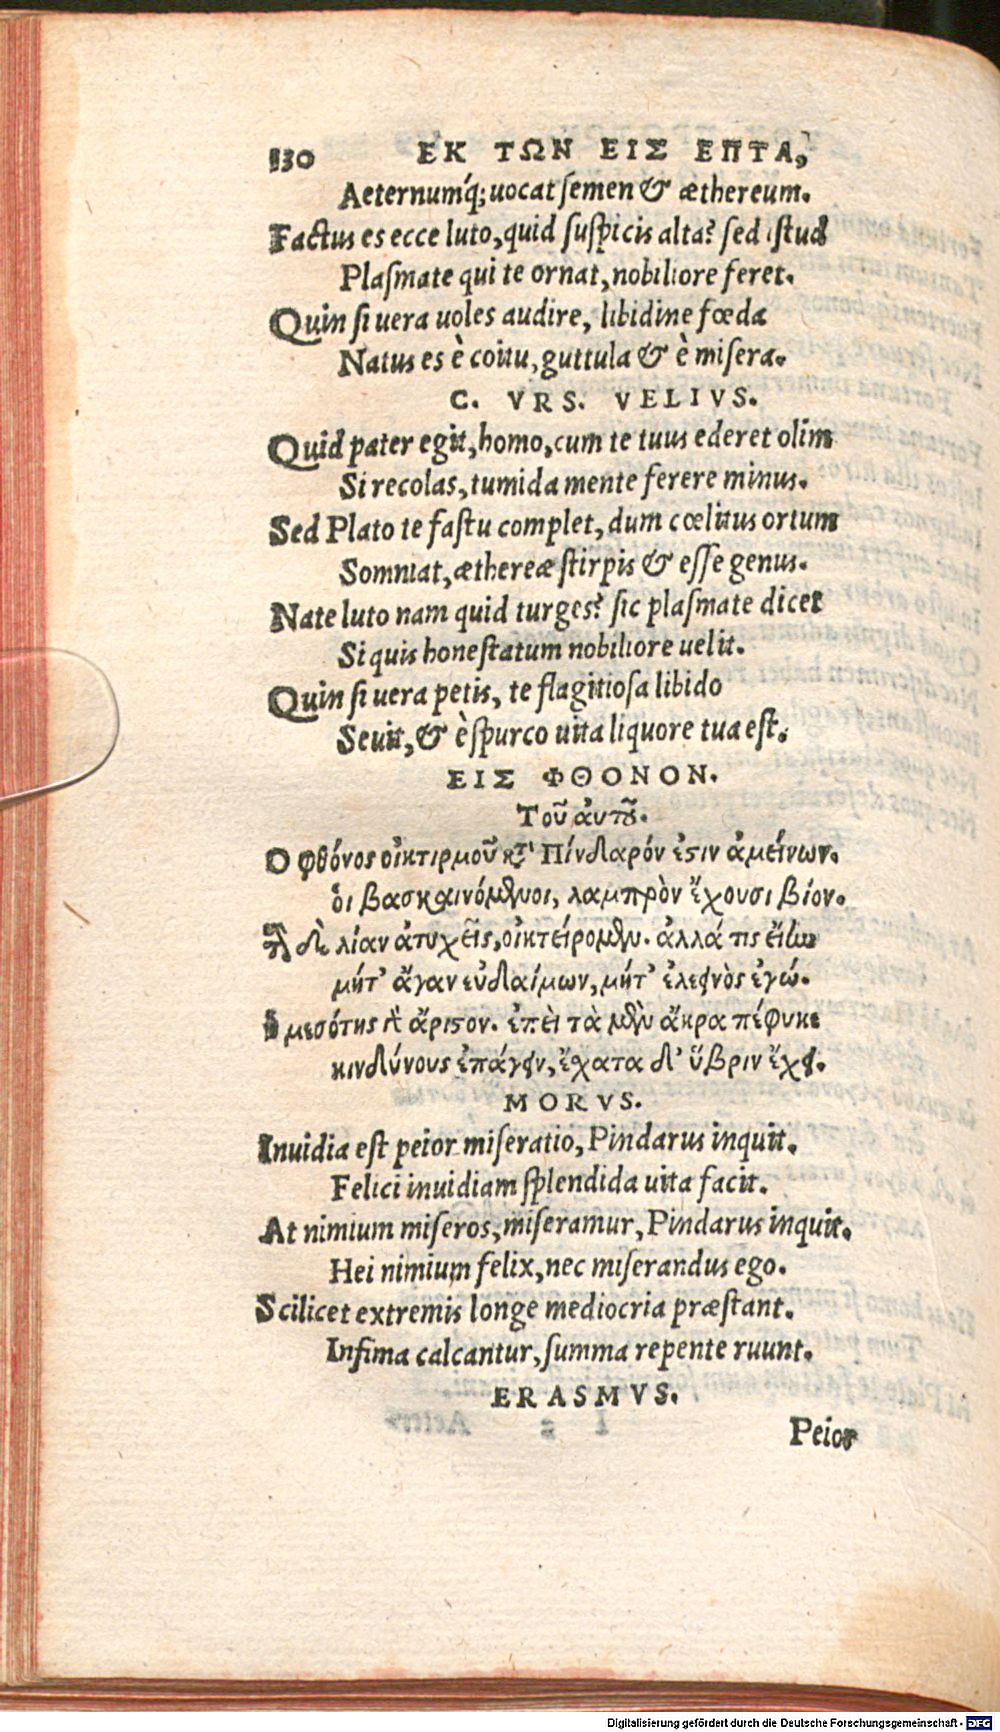 130 ΕΚ ΤΩΝ ΕΙΣ ΕΠΤΑ,
Aeternumq́; uocat semen & æthereum.
Factus es ecce luto, quid suspicis alta? sed istud
Plasmate qui te ornat, nobiliore feret.
Quin si uera uoles audire, libidine fœda
Natus es è coitu, guttula & è misera.
C. VRS. VELIVS.
Quid pater egit, homo, cum te tuus ederet olim
Si recolas, tumida mente ferere minus.
Sed Plato te fastu complet, dum cœlitus ortum
Somniat, æthereæ stirpis & esse genus.
Nate luto nam quid turges? sic plasmate dicet
Si quis honestatum nobiliore uelit.
Quin si uera petis, te flagitiosa libido
Seuit, & è spurco uita liquore tua est.
ΕΙΣ ΦΘΟΝΟΝ.
Τοῦ ἀυτοῦ.
Ο φθόνος οἰκτιρμοῦ κτ̀ Πίνδαρόν ἐστιν ἀμείνων.
ὁι βασκαινόμενοι, λαμπρὸν ἔχουσι βίον.
δὲ λίαν ἀτυχεῖς, οἰκτείρομεν. ἀλλά τις εἴην
μήτ' ἄγαν εὐδαίμων, μήτ' ἐλεεινὸς ἐγώ.
Ἡ μεσότης γὰ ἄριστον. ἐπεὶ τὰ μὲν ἄκρα πέφυκε
κινδύνους ἐπάγειν, ἔχατα δ' ὕβριν ἔχει.
MORVS.
Inuidia est peior miseratio, Pindarus inquit.
Felici inuidiam splendida uita facit.
At nimium miseros, miseramur, Pindarus inquit.
Hei nimium felix, nec miserandus ego.
Scilicet extremis longe mediocria præstant.
Infima calcantur, summa repente ruunt.
ERASMVS.
Peior
Digitalisierung gefördert durch die Deutsche Forschungsgemeinschaft - DFG